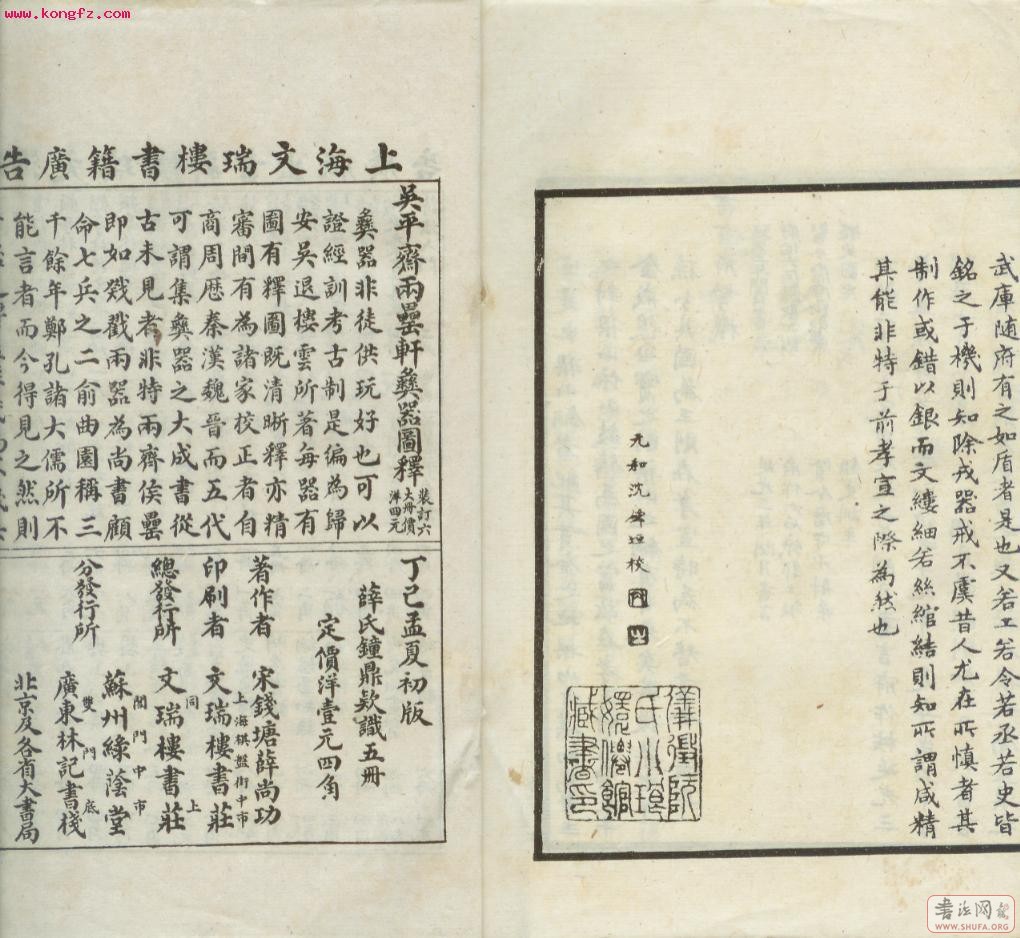 www.kongfz.com
武庫随府有之如盾者是也又若工若令若丞若史皆
銘之于機則知除戎器戒不虞昔人尤在所慎者其
制作或錯以銀而文縷細若絲綰結則知所謂咸精
其能非特于前孝宣之際為然也
元和沈
校
上海文瑞樓書籍廣告
吳平齋兩罍軒彝器圖釋 裝訂六大冊價洋四元
彝器非徒供玩好也可以
證經訓考古制是編為歸
安吳退樓雲所著每器有
圖有釋圖既清晰釋亦精
審間有為諸家校正者自
商周歷秦漢魏晉而五代
可謂集彝器之大成書從
古未見者非特兩齊侯罍
即如戣戳兩器為尚書顧
命七兵之二俞曲園稱三
千餘年鄭孔諸大儒所不
能言者而今得見之然則
丁巳孟夏初版
薛氏鐘鼎欵識五冊
定價洋壹元四角
著作者 宋錢塘薛尚功
印刷者 上海棋盤街中市 文瑞樓書莊
總發行所 同上 文瑞樓書莊
分發行所 蘇州閶門中市綠蔭堂
廣東雙門底林記書棧
北京及各省大書局
書法网
WWW.SHUFA.ORG